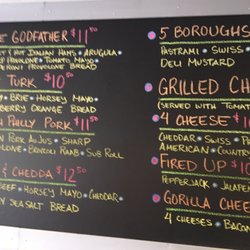 E GODFATHER $11.50
T & HOT ITALIAN HAMS • ARUGULA
PROVOLONE • TOMATO MAYO
PROVOLONE BREAD
TURK $10.50
BRIE • HORSEY MAYO
BERRY ORANGE BREAD
PHILLY PORK $11.50
PORK AU JUS • SHARP
PROVOLONE • BROCOLI RAAB • SUB ROLL
& CHEDDA $12.50
BEEF • HORSEY MAYO • CHEDDAR
SEA SALT BREAD
5 BOROUGHS
PASTRAMI • SWISS
DELI MUSTARD
GRILLED CH
(SERVED WITH TOM
4 CHEESE $10
CHEDDAR • SWISS • P
AMERICAN • COUNTR
FIRED UP $10
PEPPERJACK • JALAP
GORILLA CHEES
4 CHEESES • BAC